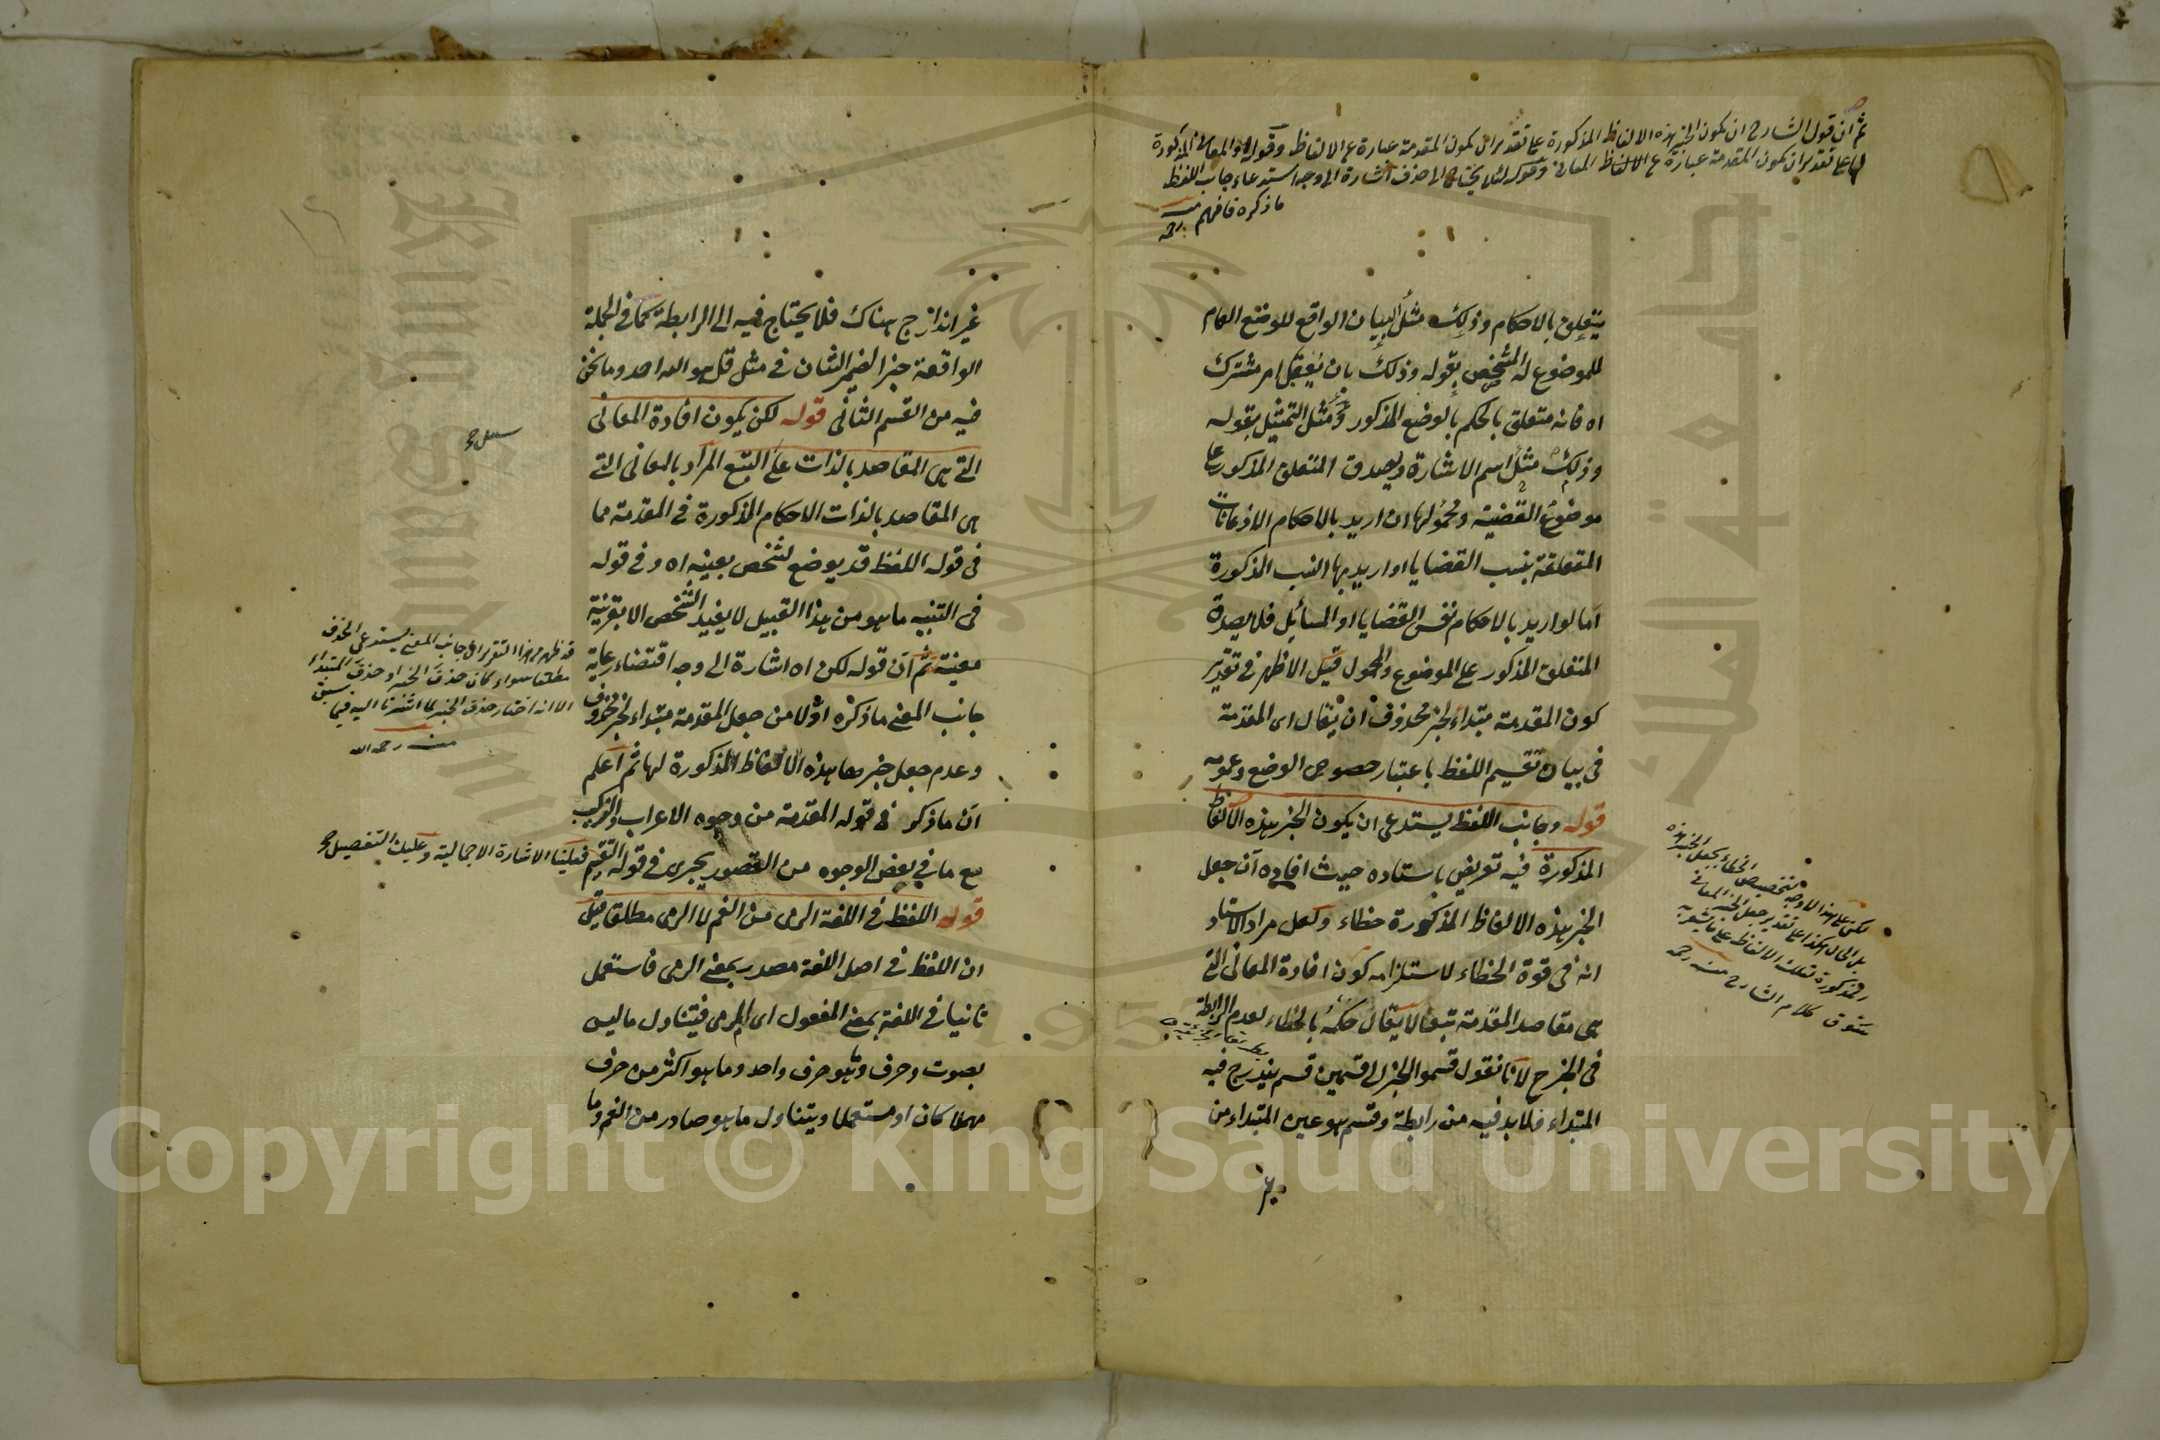 ثم ان قول الشارح ان يكون الخبر هذه الالفاظ المذكورة على تقدير ان يكون المقدمة عبارة عن الالفاظ وقوله والمعاني المذكورة
على تقدير ان يكون المقدمة عبارة عن الالفاظ المعاني وقوله لئلا يحتاج الى حذف اشارة الى وجه استدعاء جانب اللفظ
ما ذكره فافهم منه رحمه
يتعلق بالاحكام وذلك مثل البيان الواقع للوضع العام
للموضوع له المشخص بقوله وذلك بان يعقل امر مشترك
اه فانه متعلق بالحكم بالوضع المذكور ومثل التمثيل بقوله
وذلك مثل اسم الاشارة ويصدق المتعلق المذكور على
موضوع القضية ومحمولها ان اريد بالاحكام الاذعانات
المتعلقة بنسب القضايا او اريد بها النسب المذكورة
اما لو اريد بالاحكام نفس القضايا او المسائل فلا يصدق
المتعلق المذكور على الموضوع والمحمول قيل الاظهر في تقدير
كون المقدمة مبتداء لخبر محذوف ان يقال اى المقدمة
في بيان تقسيم اللفظ باعتبار خصوص الوضع وعمومه
قوله وجانب اللفظ يستدعى ان يكون الخبر هذه الالفاظ
المذكورة فيه تعريض باستاده حيث افاده ان جعل
الخبر هذه الالفاظ المذكورة خطاء ولعل مراد الاستاد
انه في قوة الخطاء لاستلزامه كون افادة المعانى التى
هى مقاصد المقدمة تبعا لا يقال حكمه بالخطاء لعدم الرابطة
في الخبر ح لانا نقول قسموا الخبر الى قسمين قسم يندرج فيه
المبتداء فلا بد فيه من رابطة وقسم هو عين المبتداء من
غير
لكن على هذا لا وجه بتخصيص الخطاء بجعل الخبر هذه
بل الحال هكذا على تقدير جعل الخبر المعاني
المذكورة لتلك الالفاظ على ما يشعر به
سوق كلام الشارح منه رحمه
غير اندراج هناك فلا يحتاج فيه الى الرابطة كما في الجملة
الواقعة خبرا لضمير الشان في مثل قل هو الله احد وما نحن
فيه من القسم الثانى قوله لكن يكون افادة المعانى
التى هى المقاصد بالذات على التبع المراد بالمعانى التى
هى المقاصد بالذات الاحكام المذكورة في المقدمة مما
في قوله اللفظ قد يوضع لشخص بعينه اه وفي قوله
في التنبيه ما هو من هذا القبيل لا يفيد التشخص الا بقرينة
معينة ثم ان قوله لكن اه اشارة الى وجه اقتضاء رعاية
جانب المعنى ما ذكره اولا من جعل المقدمة مبتداء لخبر محذوف
وعدم جعل خبرها هذه الالفاظ المذكورة لها ثم اعلم
ان ما ذكر في قوله المقدمة من وجوه الاعراب والتركيب
مع ما في بعض الوجوه من القصور يجرى في قوله التقسيم فيكفينا الاشارة الاجمالية وعليك التفصيل
قوله اللفظ في اللغة الرمى من الفم لا الرمى مطلقا قيل
ان اللفظ في اصل اللغة مصدر بمعنى الرمى فاستعمل
ثانيا في اللغة بمعنى المفعول اى المرمى فيتناول ما ليس
بصوت وحرف وما هو حرف واحد وما هو اكثر من حرف
مهملا كان او مستعملا ويتناول ما هو صادر من الفم وما
قد ظهر من هذا التقرير ان جانب المعنى يستدعى الحذف
مطلقا سواء كان حذف الخبر او حذف المبتداء
الا انه اختار حذف الخبر لما اشرنا اليه فيما سبق
منه رحمه الله
Copyright © King Saud University
King Saud University
جامعة الملك
1957